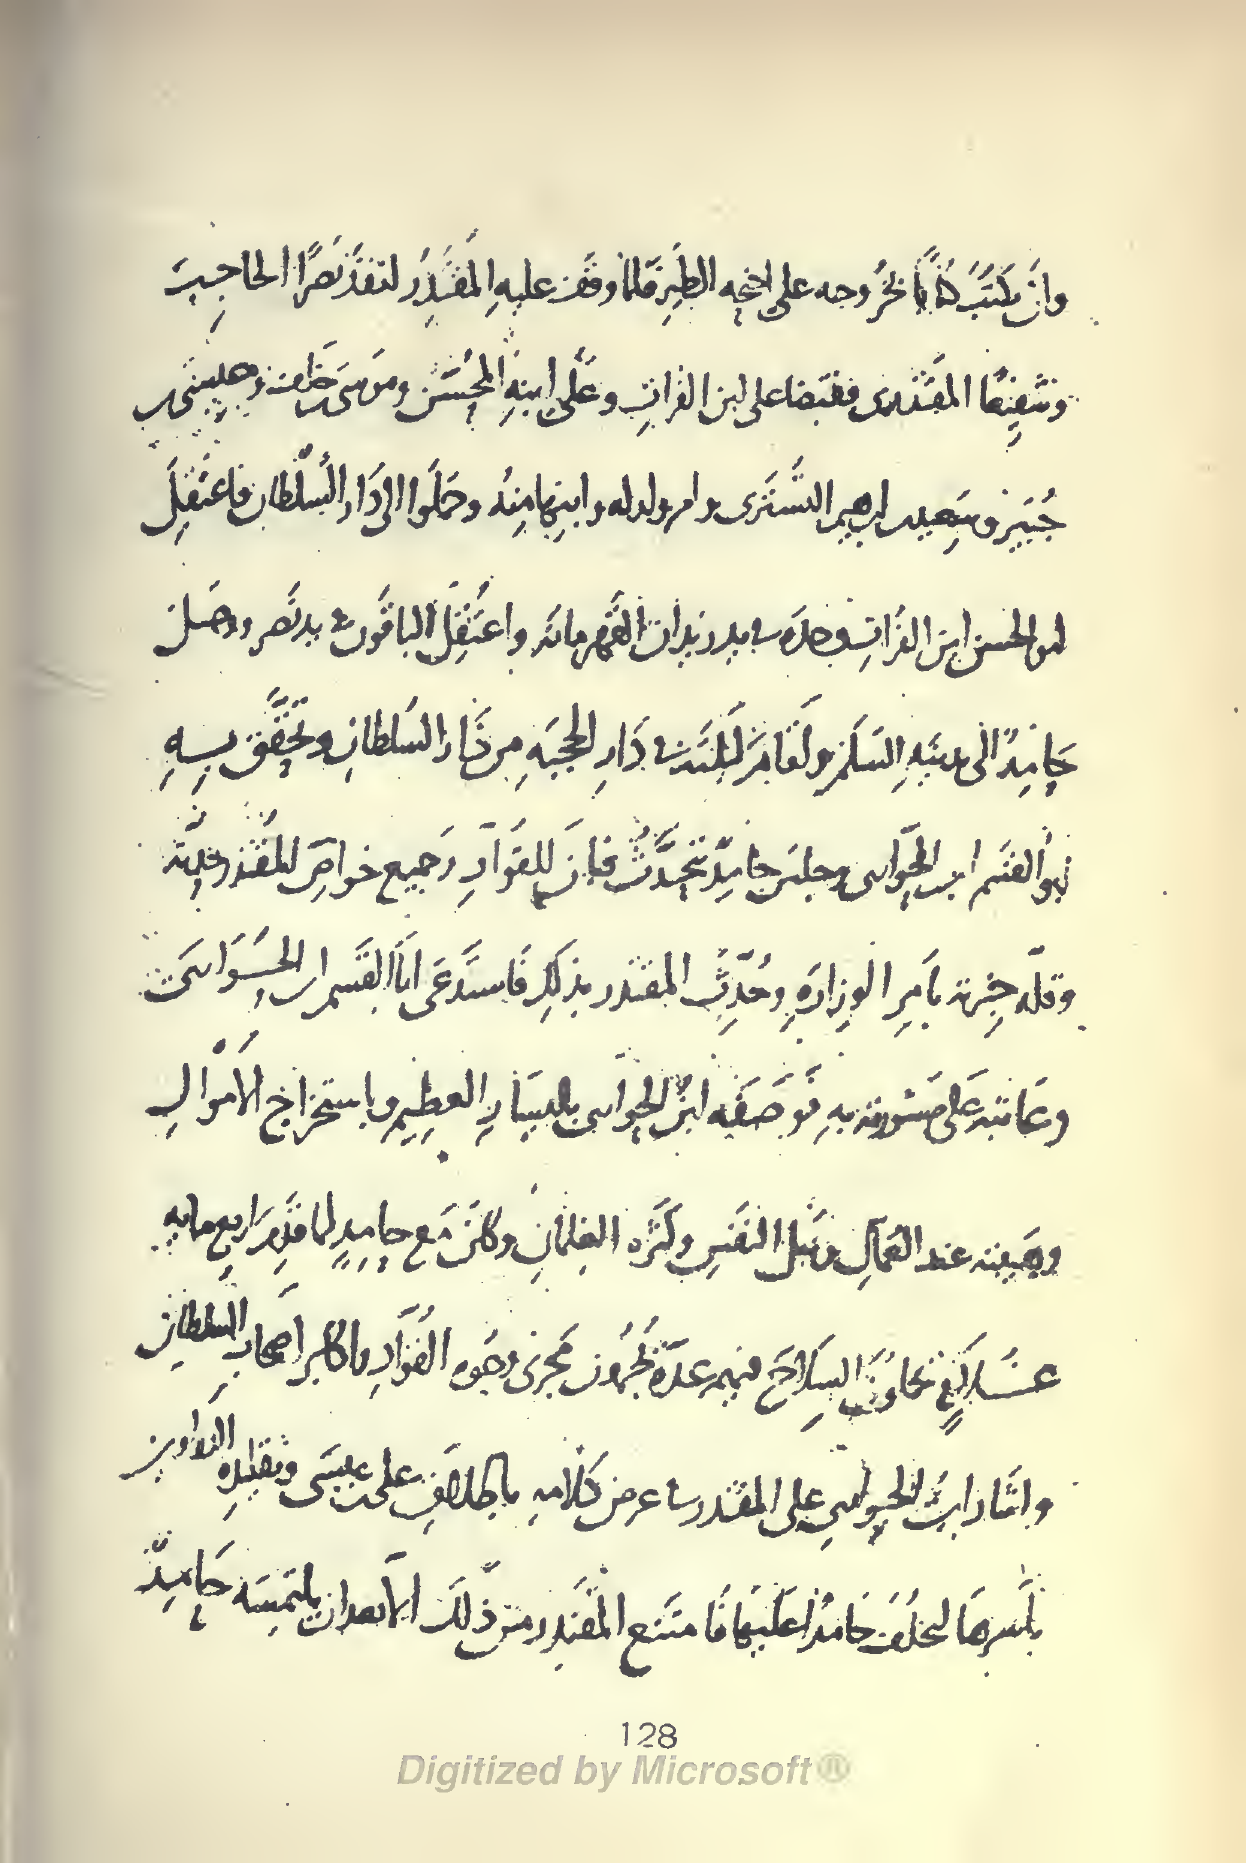 وان يكتب كتابا بخروجه على اجنحه الطير فلما وقف عليه المقتدر انفذ نصرا الحاجب
وشفيعا المقتدرى فقبضا على ابن الفرات وعلى ابنه المحسن وموسى بن خلف وعيسى بن
جبير وسعيد بن ابرهيم التسترى وام ولد له وابنها منه وحملوا الى دار السلطان فاعتقل
ابو الحسن ابن الفرات وحده فى يد زيدان القهرمانه واعتقل الباقون فى يد نصر ووصل
حامد الى مدينه السلم واقام ليلته فى دار الحجبه من دار السلطان وتحقق به
ابو القسم ابن الحوارى وجلس حامد يتحدث فبان للقواد وجميع خواص المقتدر حدته
وقله خبرته بامر الوزاره وحدث المقتدر بذلك فاستدعى ابا القسم ابن الحوارى
وعاتبه على مشورته به فوصفه ابن الحوارى باليسار العظيم وباستخراج الاموال
وهيبته عند العمال ونبل النفس وكثره الغلمان وكان مع حامد لما قدم اربع مايه
غلام يحملون السلاح منهم عده يجرون مجرى وجوه القواد واكابر اصحاب السلطان
واشار ابن الحوارى على المقتدر فى عرض كلامه باطلاق على بن عيسى وتقليده الدواوين
باسرها ليخلف حامدا عليها فامتنع المقتدر من ذلك الا بعد ان يلتمسه حامد
128
Digitized by Microsoft®